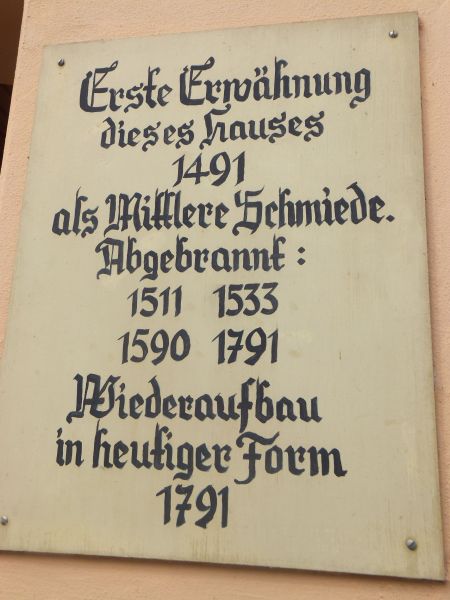 Erste Erwähnung
dieses Hauses
1491
als Mittlere Schmiede.
Abgebrannt:
1511 1533
1590 1791
Wiederaufbau
in heutiger Form
1791